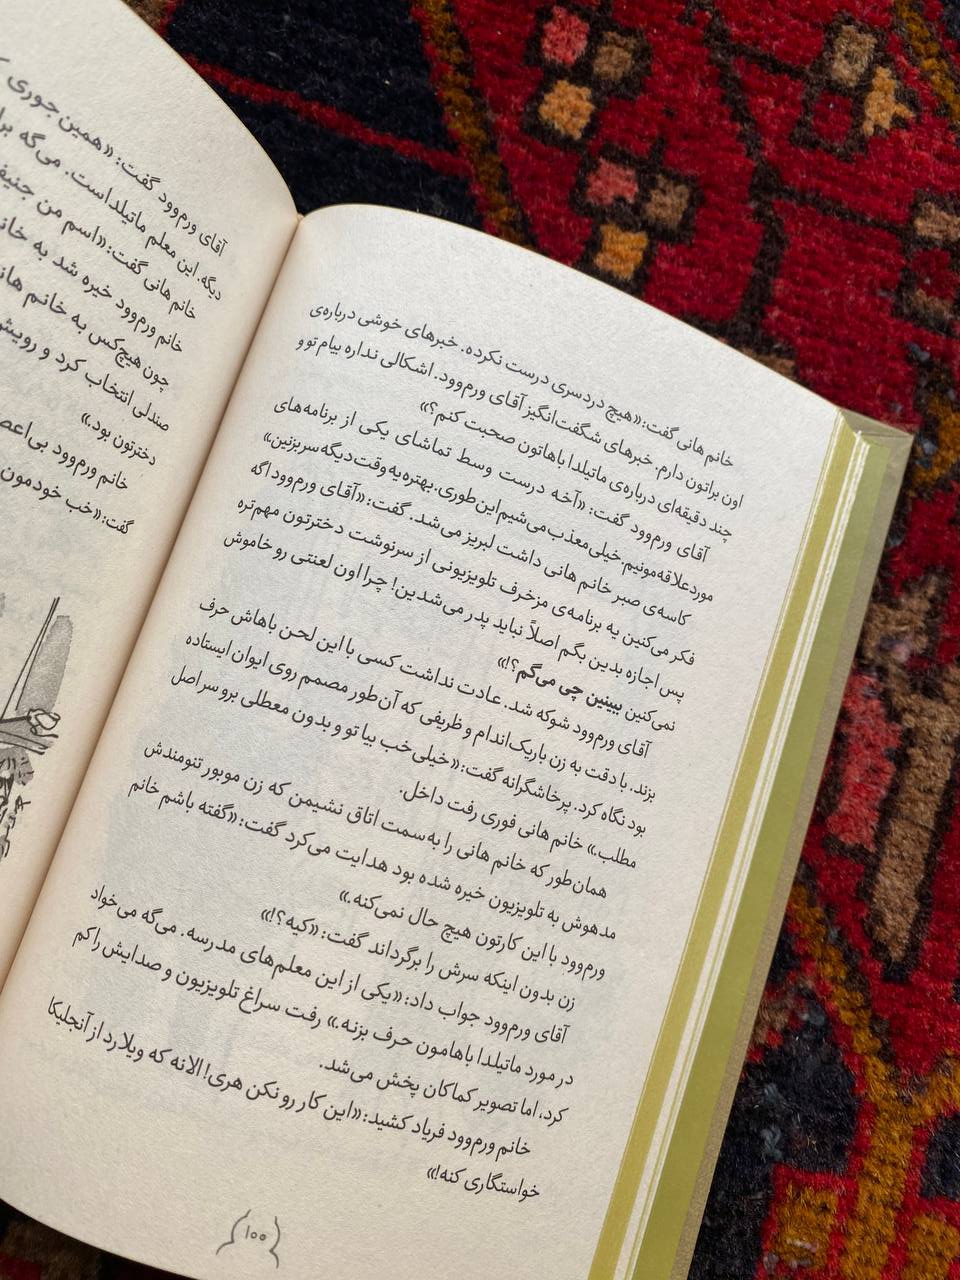 خانم هانی گفت: «هیچ دردسری درست نکرده. خبرهای خوشی درباره‌ی
اون براتون دارم. خبرهای شگفت‌انگیز آقای ورم‌وود. اشکالی نداره بیام تو و
چند دقیقه‌ای درباره‌ی ماتیلدا باهاتون صحبت کنم؟»
آقای ورم‌وود گفت: «آخه درست وسط تماشای یکی از برنامه‌های
موردعلاقه‌مونیم. خیلی معذب می‌شیم این‌طوری. بهتره یه وقت دیگه سر بزنین.»
کاسه‌ی صبر خانم هانی داشت لبریز می‌شد. گفت: «آقای ورم‌وود اگه
فکر می‌کنین یه برنامه‌ی مزخرف تلویزیونی از سرنوشت دخترتون مهم‌تره
پس اجازه بدین بگم اصلاً نباید پدر می‌شدین! چرا اون لعنتی رو خاموش
نمی‌کنین ببینین چی می‌گم؟!»
آقای ورم‌وود شوکه شد. عادت نداشت کسی با این لحن باهاش حرف
بزند. با دقت به زن باریک‌اندام و ظریفی که آن‌طور مصمم روی ایوان ایستاده
بود نگاه کرد. پرخاشگرانه گفت: «خیلی خب بیا تو و بدون معطلی برو سر اصل
مطلب.» خانم هانی فوری رفت داخل.
همان‌طور که خانم هانی را به‌سمت اتاق نشیمن که زن موبور تنومندش
مدهوش به تلویزیون خیره شده بود هدایت می‌کرد گفت: «گفته باشم خانم
ورم‌وود با این کارتون هیچ حال نمی‌کنه.»
زن بدون اینکه سرش را برگرداند گفت: «کیه؟!»
آقای ورم‌وود جواب داد: «یکی از این معلم‌های مدرسه. می‌گه می‌خواد
در مورد ماتیلدا باهامون حرف بزنه.» رفت سراغ تلویزیون و صدایش را کم
کرد، اما تصویر کماکان پخش می‌شد.
خانم ورم‌وود فریاد کشید: «این کار رو نکن هری! الانه که ویلارد از آنجلیکا
خواستگاری کنه!»
۱۰۰
آقای ورم‌وود گفت: «همین جوری
دیگه. این معلم ماتیلداست. می‌گه
خانم هانی گفت: «اسم من
خانم ورم‌وود خیره شد به
چون هیچ‌کس به خانم
صندلی انتخاب کرد و
دخترتون بود.»
خانم ورم‌وود
گفت: «خب خودمون